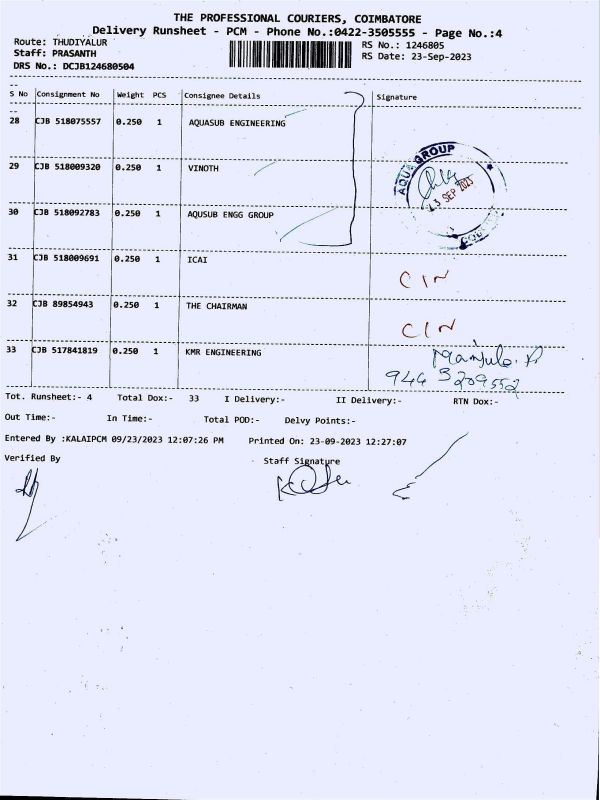 THE PROFESSIONAL COURIERS, COIMBATORE
Delivery Runsheet - PCM - Phone No.:0422-3505555 - Page No.:4
Route: THUDIYALUR
RS No.: 1246805
Staff: PRASANTH
RS Date: 23-Sep-2023
DRS No.: DCJB124680504
S No Consignment No Weight PCS Consignee Details Signature
28 CJB 518075557 0.250 1 AQUASUB ENGINEERING
29 CJB 518009320 0.250 1 VINOTH
AQUA GROUP
23 SEP 2023
30 CJB 518092783 0.250 1 AQUSUB ENGG GROUP
31 CJB 518009691 0.250 1 ICAI
CIN
32 CJB 89854943 0.250 1 THE CHAIRMAN
CIN
33 CJB 517841819 0.250 1 KMR ENGINEERING
Manjula. P
944 3209552
Tot. Runsheet:- 4 Total Dox:- 33 I Delivery:- II Delivery:- RTN Dox:-
Out Time:- In Time:- Total POD:- Delvy Points:-
Entered By :KALAIPCM 09/23/2023 12:07:26 PM Printed On: 23-09-2023 12:27:07
Verified By Staff Signature